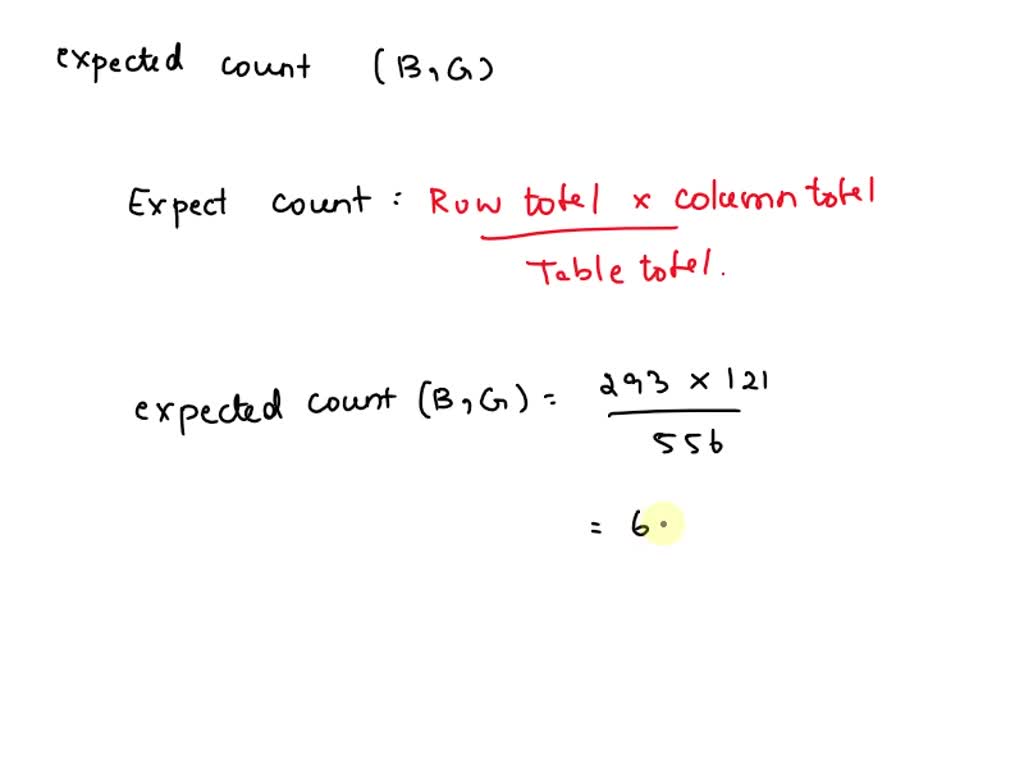 expected count (B,G)
Expect count : Row totel x column totel
Table totel.
expected count (B,G) = 293 x 121
556
= 6